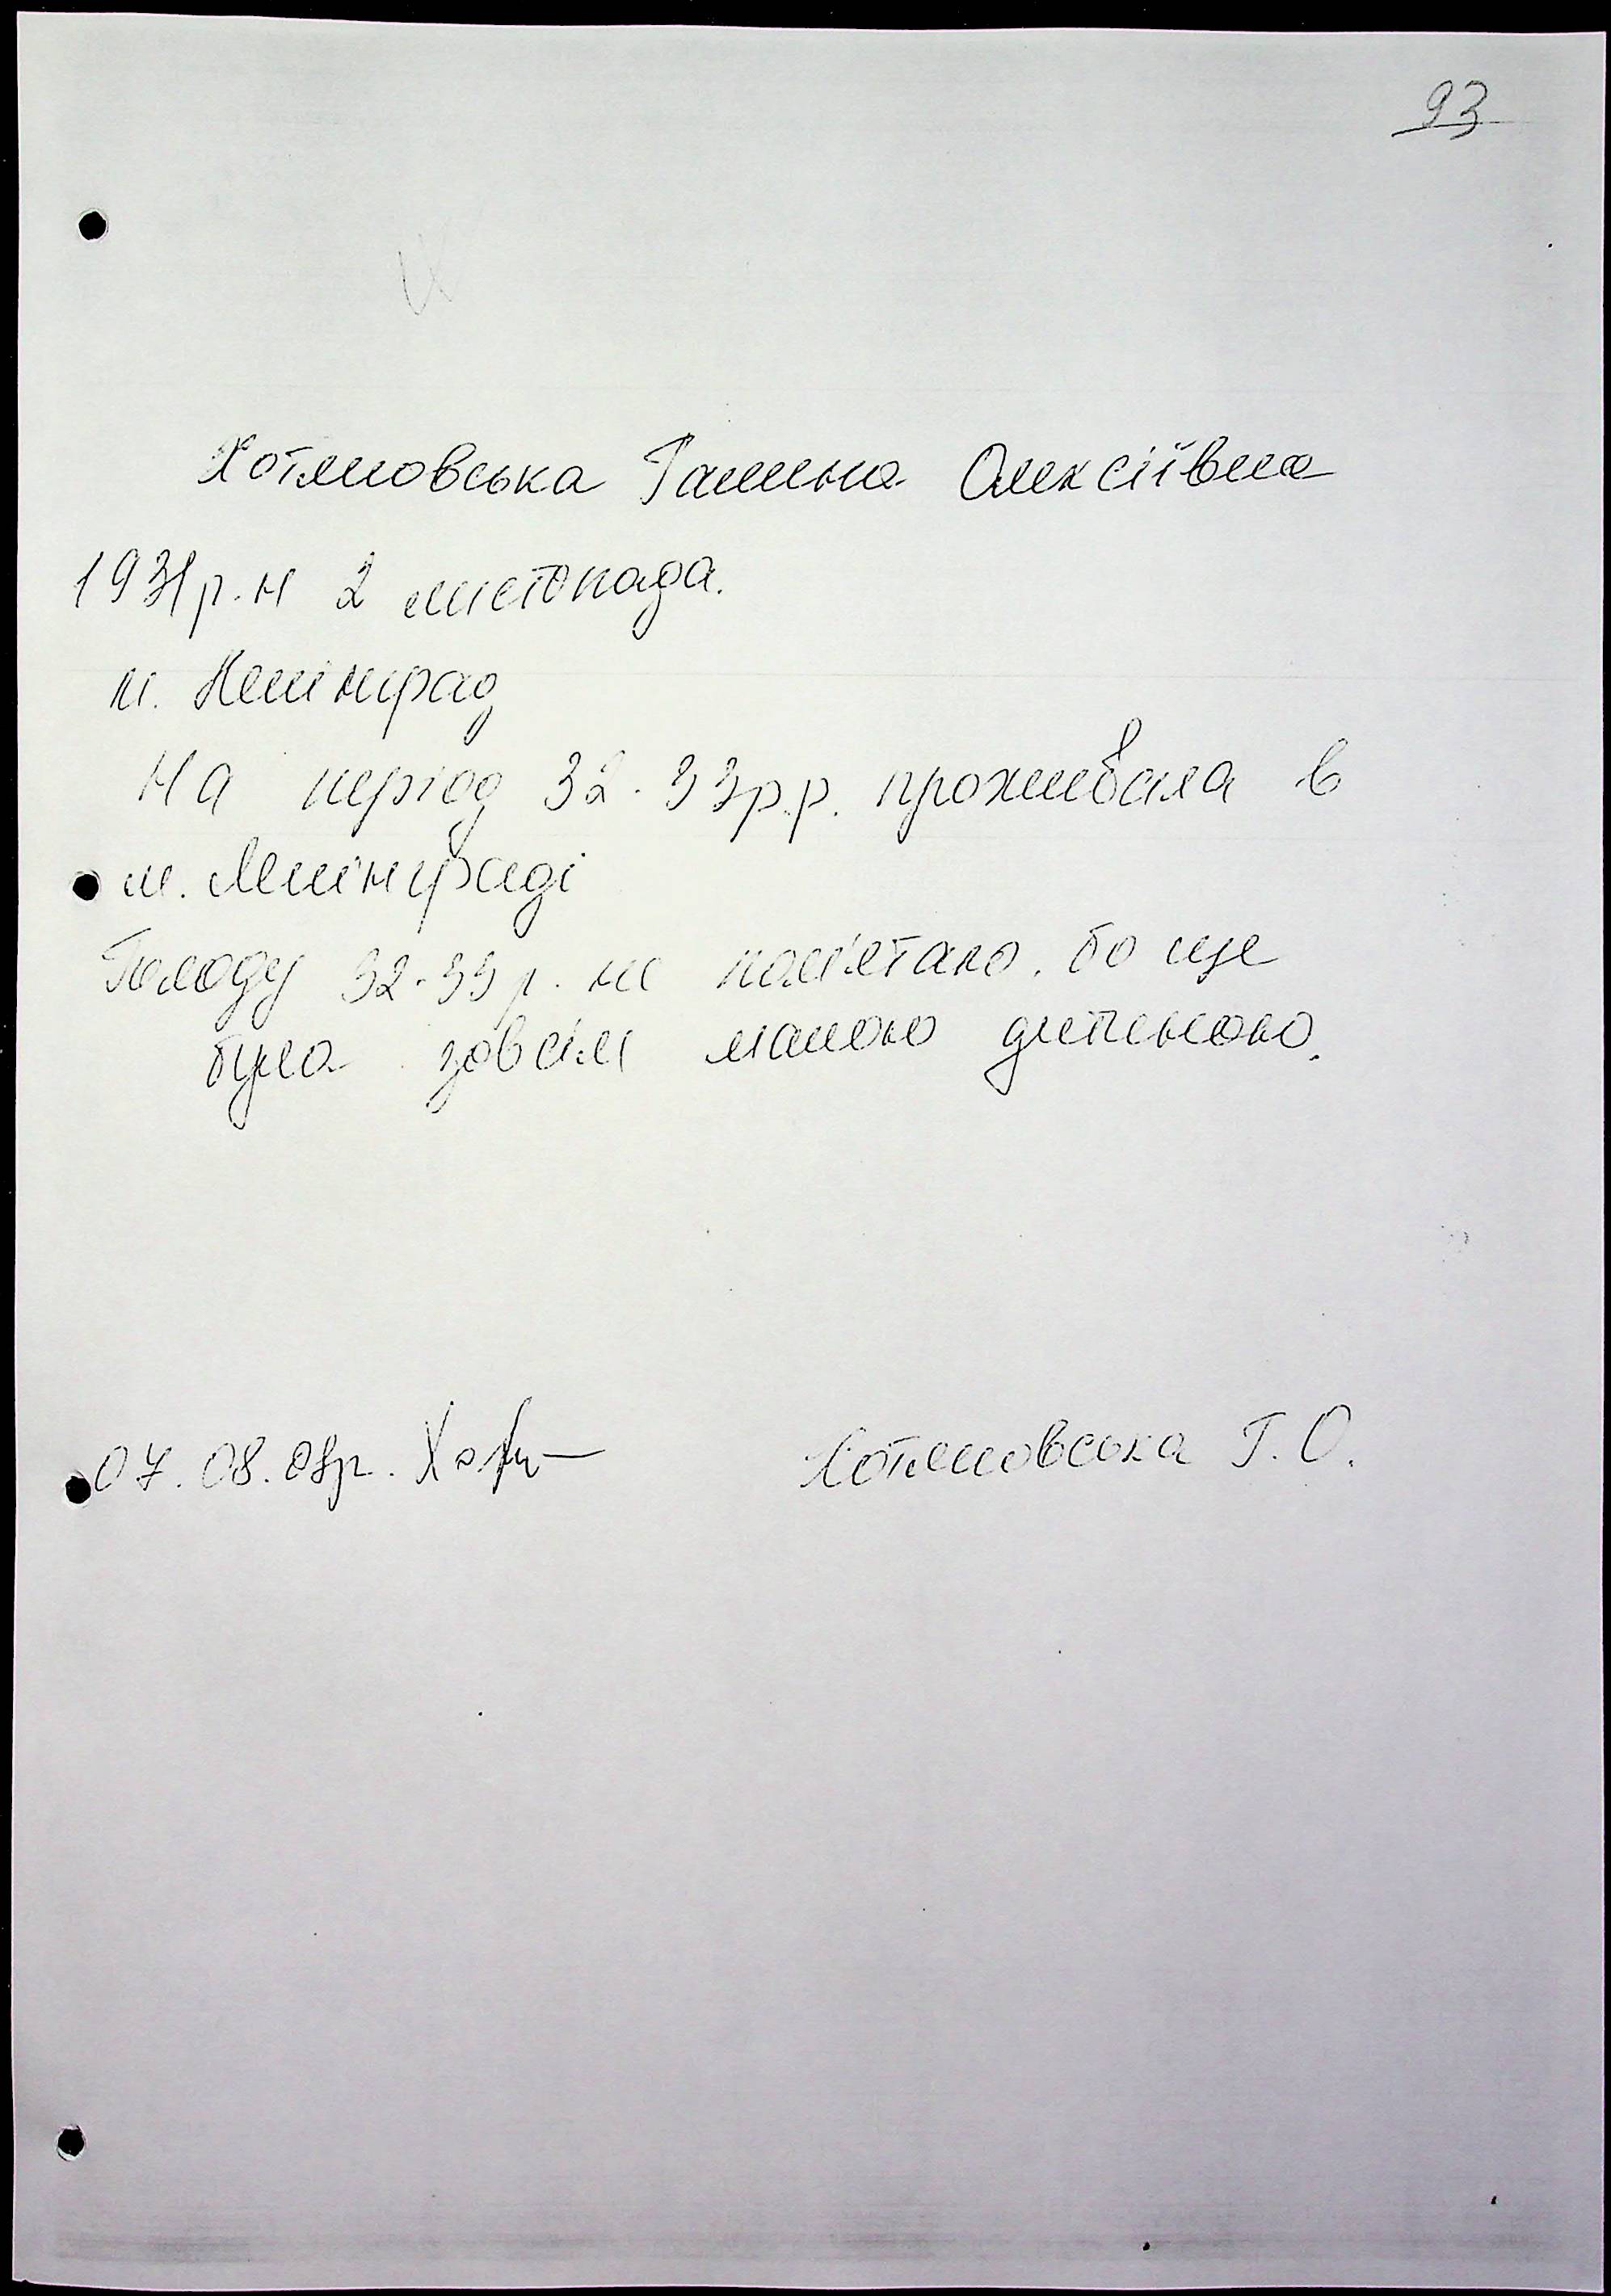 93
Хотяновська Галина Олексіївна
1931р.н 2 листопада.
м. Ленінград
На період 32-33р.р. проживала в
м. Ленінграді
Голоду 32-33 р. не пам'ятаю, бо ще
була зовсім малою дитиною.
07.08.08р. Хотяновська Г.О.